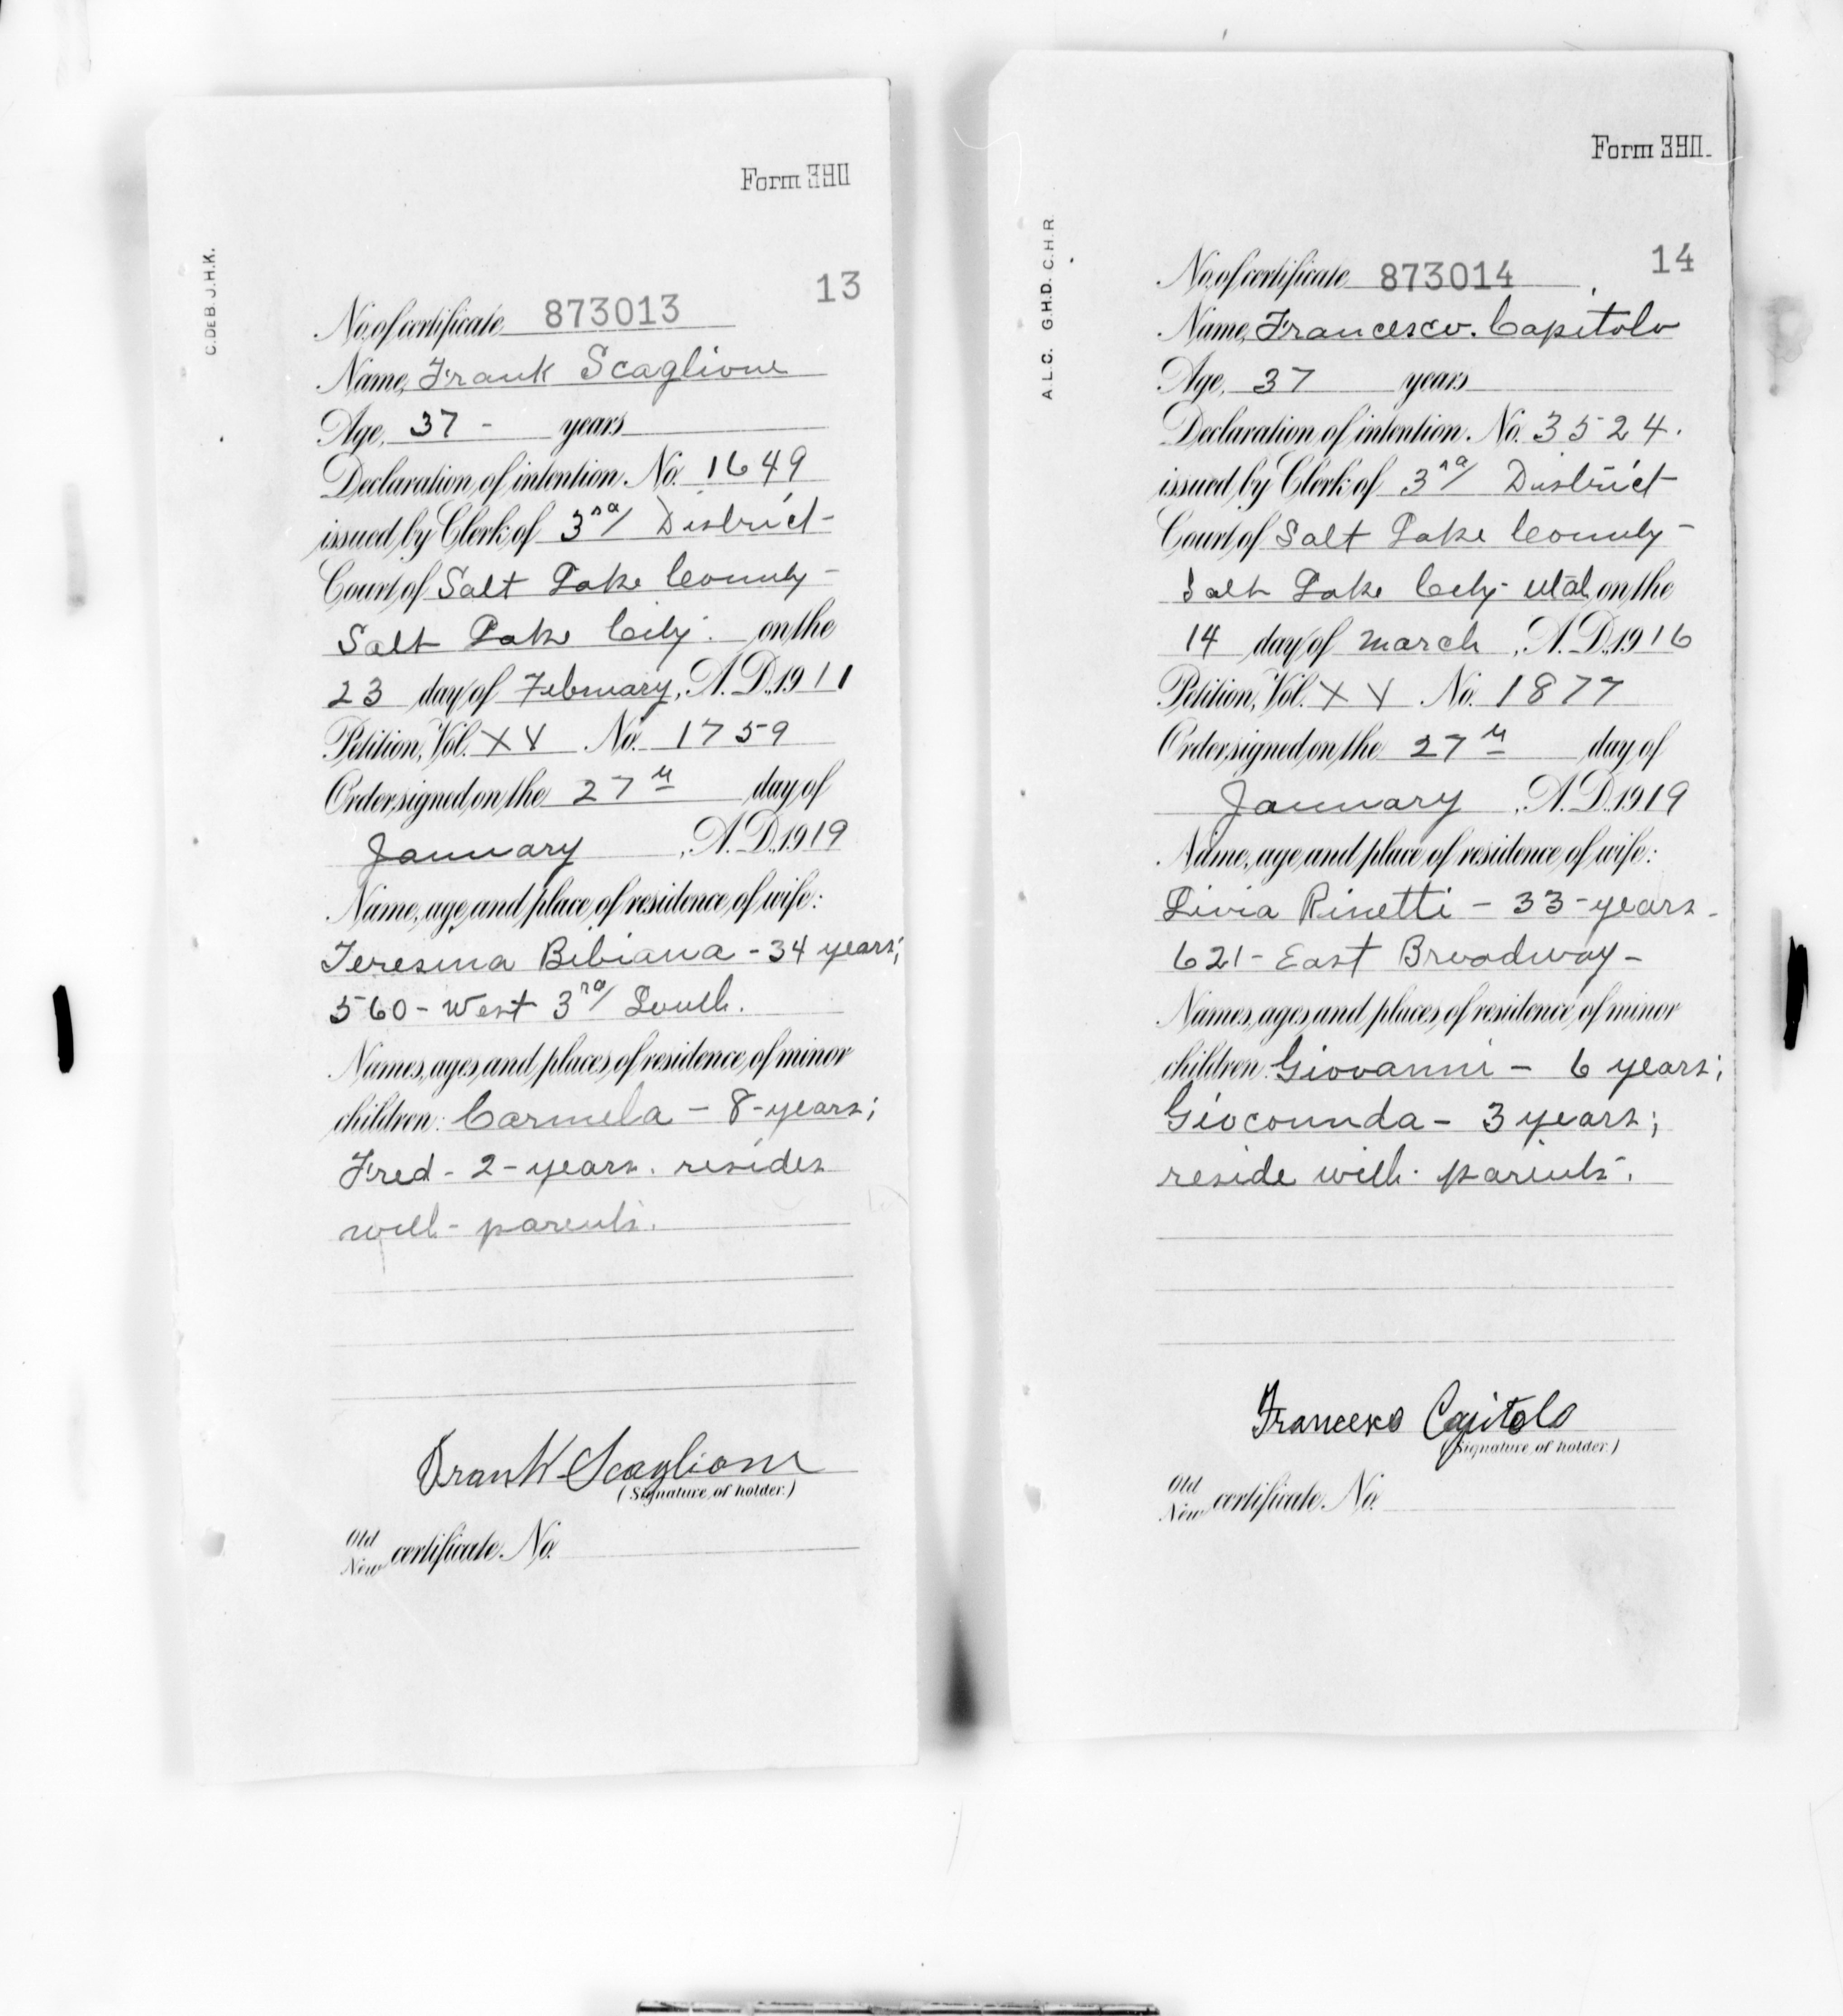 Form 390
C.DEB. J.H.K.
13
No. of certificate 873013
Name, Frank Scaglione
Age, 37 - years
Declaration of intention No. 1649
issued by Clerk of 3rd District
Court of Salt Lake County -
Salt Lake City. on the
23 day of February, A.D. 1911
Petition, Vol. XV No. 1759
Order signed on the 27th day of
January, A.D. 1919
Name, age and place of residence of wife:
Teresina Bibiana - 34 years;
560 - West 3rd South.
Names, ages and places of residence of minor
children: Carmela - 8 - years;
Fred - 2 - years. resides
with - parents.
Frank Scaglione
(Signature of holder.)
Old
New certificate No.
Form 390.
A.L.C. G.H.D. C.H.R
14
No. of certificate 873014
Name, Francesco. Capitolo
Age, 37 years
Declaration of intention. No. 3524.
issued by Clerk of 3rd District
Court of Salt Lake County -
Salt Lake City Utah on the
14 day of March, A.D. 1916
Petition, Vol. XV No. 1877
Order signed on the 27th day of
January, A.D. 1919
Name, age and place of residence of wife:
Livia Rinetti - 33 - years.
621 - East Broadway -
Names, ages and places of residence of minor
children: Giovanni - 6 years;
Giocounda - 3 years;
reside with parents.
Francesco Capitolo
(Signature of holder.)
Old
New certificate No.